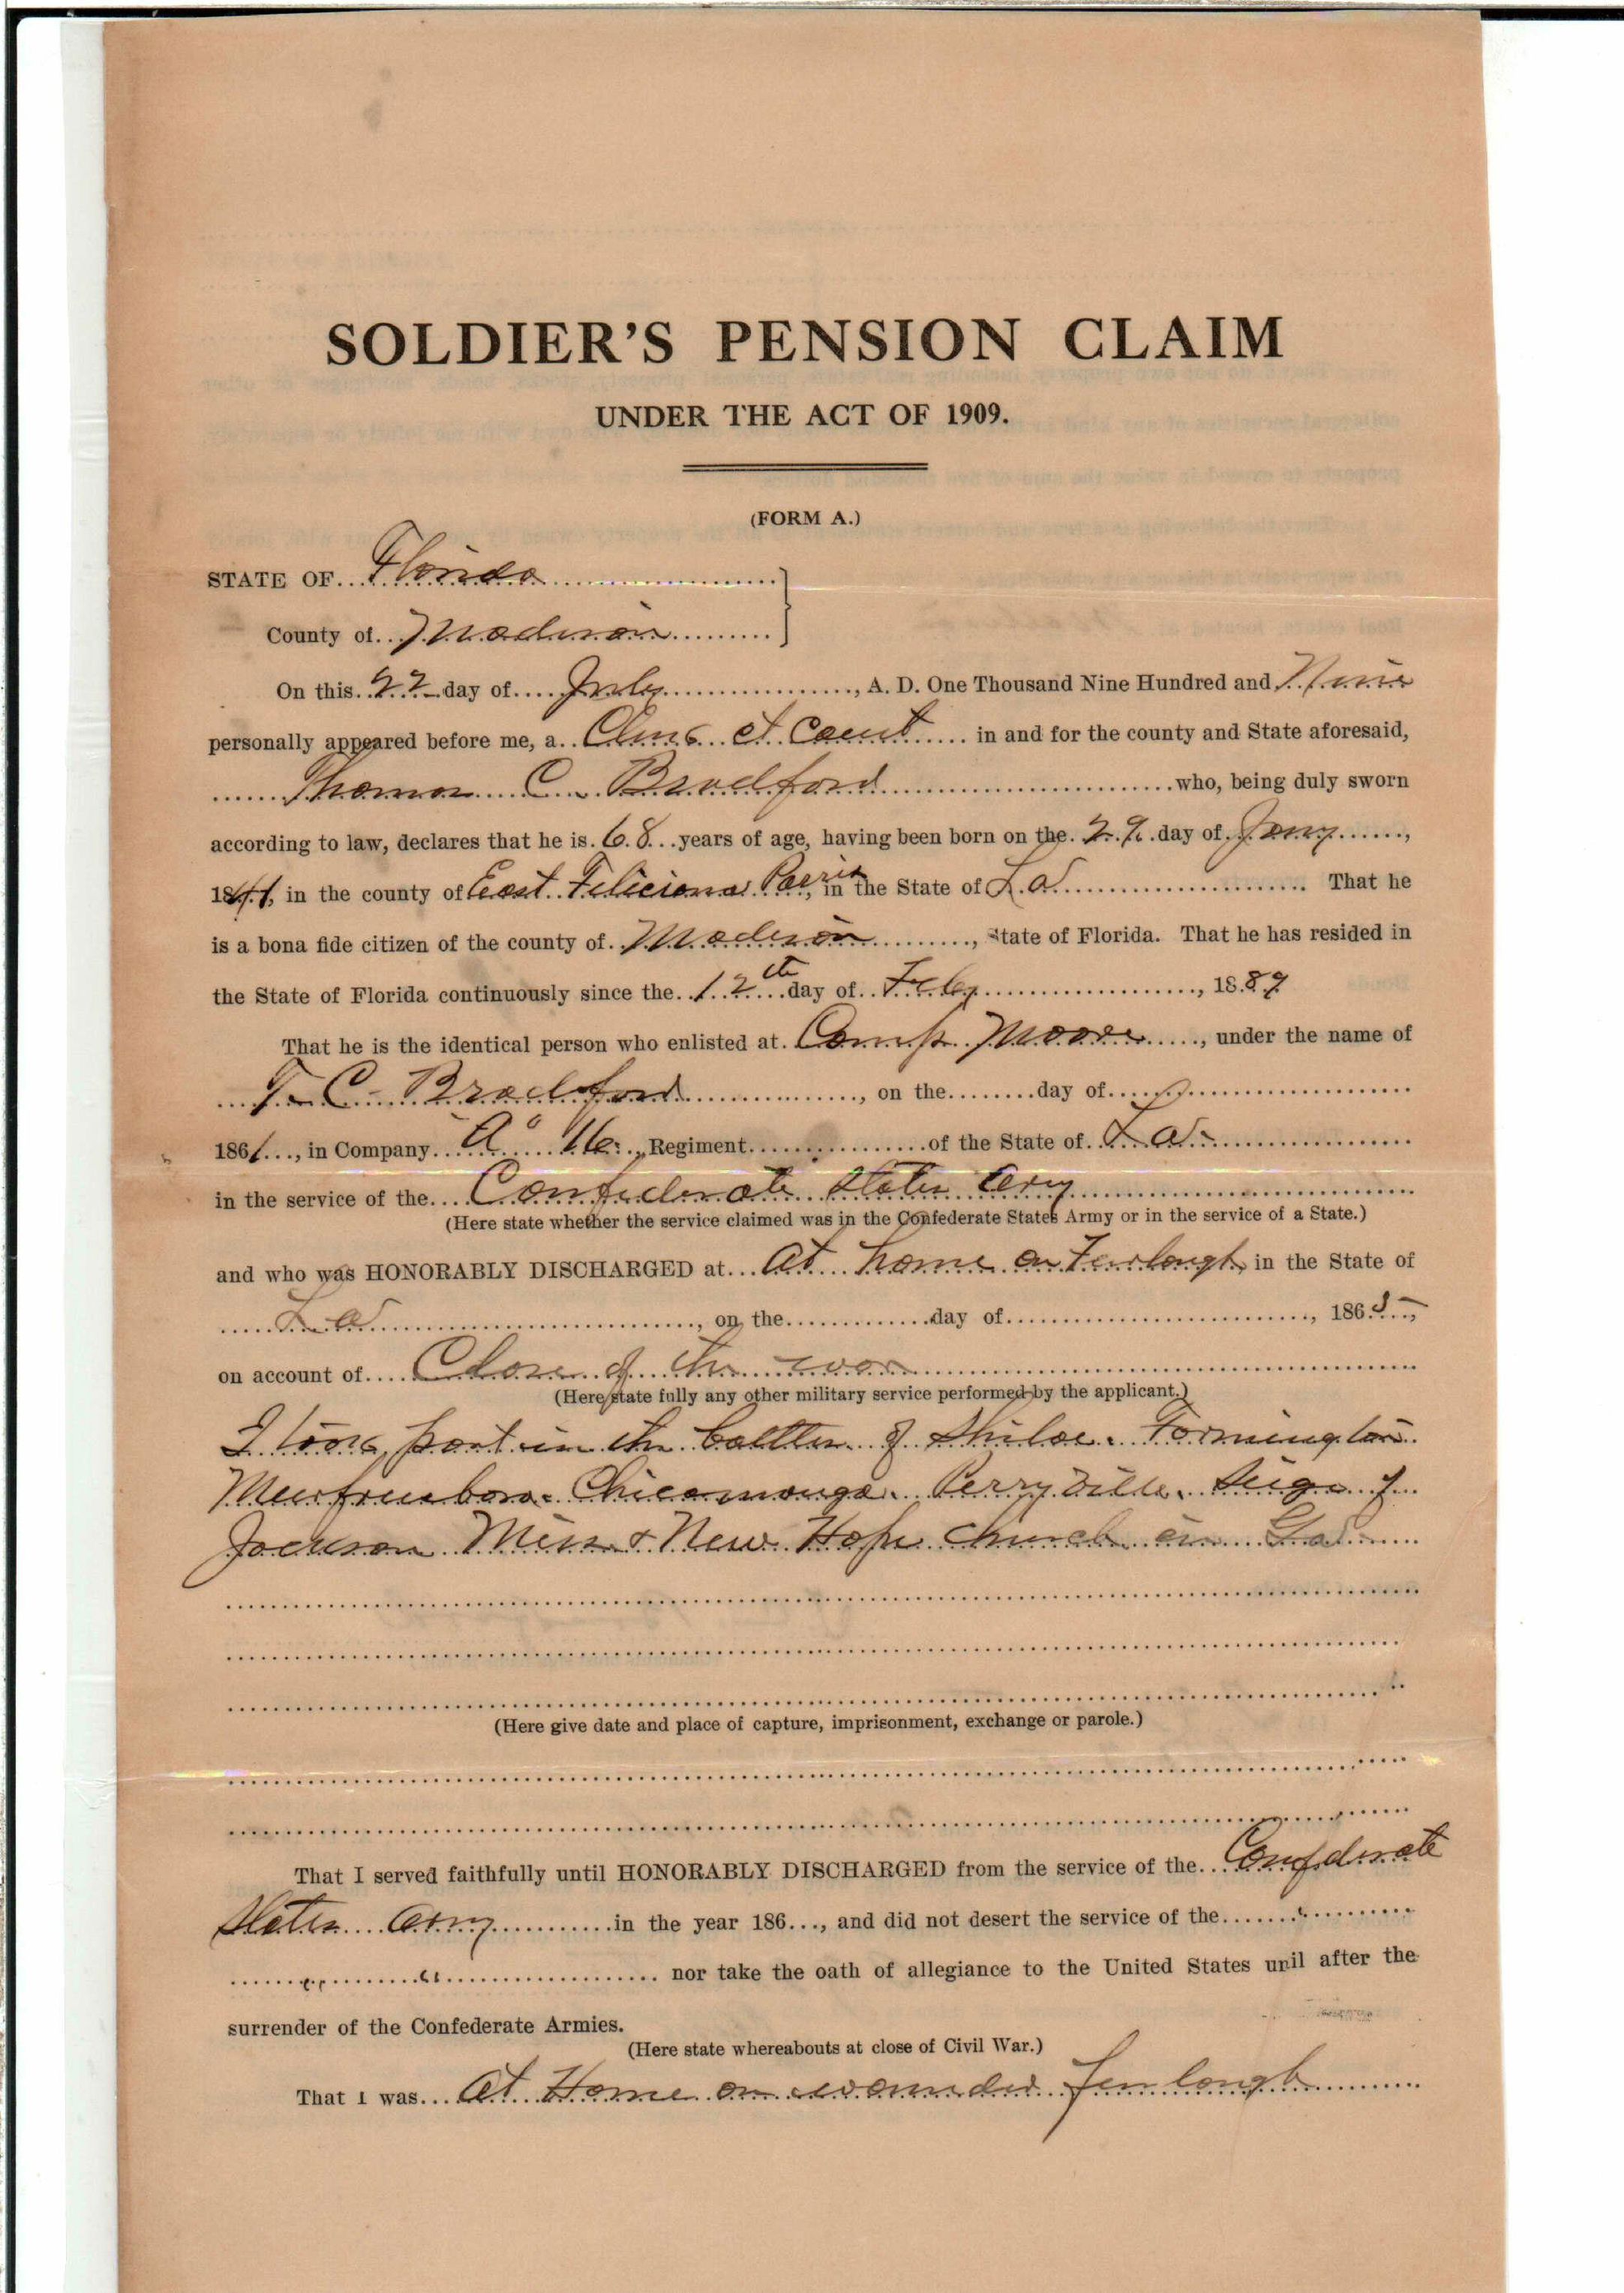 SOLDIER'S PENSION CLAIM
UNDER THE ACT OF 1909.
(FORM A.)
STATE OF Florida
County of Madison
On this 22 day of July, A. D. One Thousand Nine Hundred and Nine
personally appeared before me, a Clerk Ct Court in and for the county and State aforesaid,
Thomas C. Bradford who, being duly sworn
according to law, declares that he is 68 years of age, having been born on the 29 day of Jany,
1841, in the county of East Feliciana Parris, in the State of La. That he
is a bona fide citizen of the county of Madison, State of Florida. That he has resided in
the State of Florida continuously since the 12th day of Feby, 1889
That he is the identical person who enlisted at Camp Moore, under the name of
T. C. Bradford, on the day of
1861, in Company "A" 16, Regiment of the State of La.
in the service of the Confederate States Army
(Here state whether the service claimed was in the Confederate States Army or in the service of a State.)
and who was HONORABLY DISCHARGED at At home on Furlough, in the State of
La, on the day of, 1865,
on account of Close of the war
(Here state fully any other military service performed by the applicant.)
I took part in the battles of Shiloe. Farmington.
Murfreesboro. Chicamauga. Perryville. Seige of
Jackson Miss & New Hope Church in Ga
(Here give date and place of capture, imprisonment, exchange or parole.)
That I served faithfully until HONORABLY DISCHARGED from the service of the Confederate
States Army in the year 186, and did not desert the service of the "
" " nor take the oath of allegiance to the United States unil after the
surrender of the Confederate Armies.
(Here state whereabouts at close of Civil War.)
That I was At Home on wounded furlough